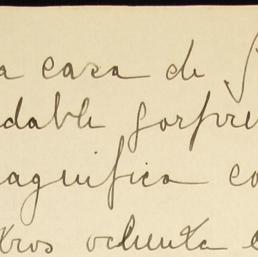 a casa de
dable sorpre
agnifica co
tros ochenta e